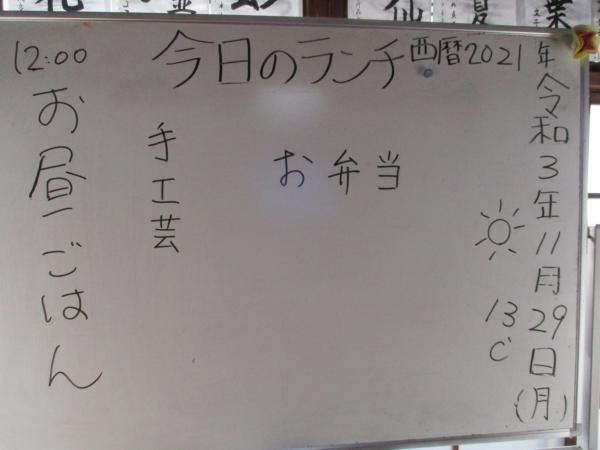 今日のランチ
西暦2021年
令和3年11月29日(月)
13℃
お弁当
手工芸
12:00
お昼ごはん